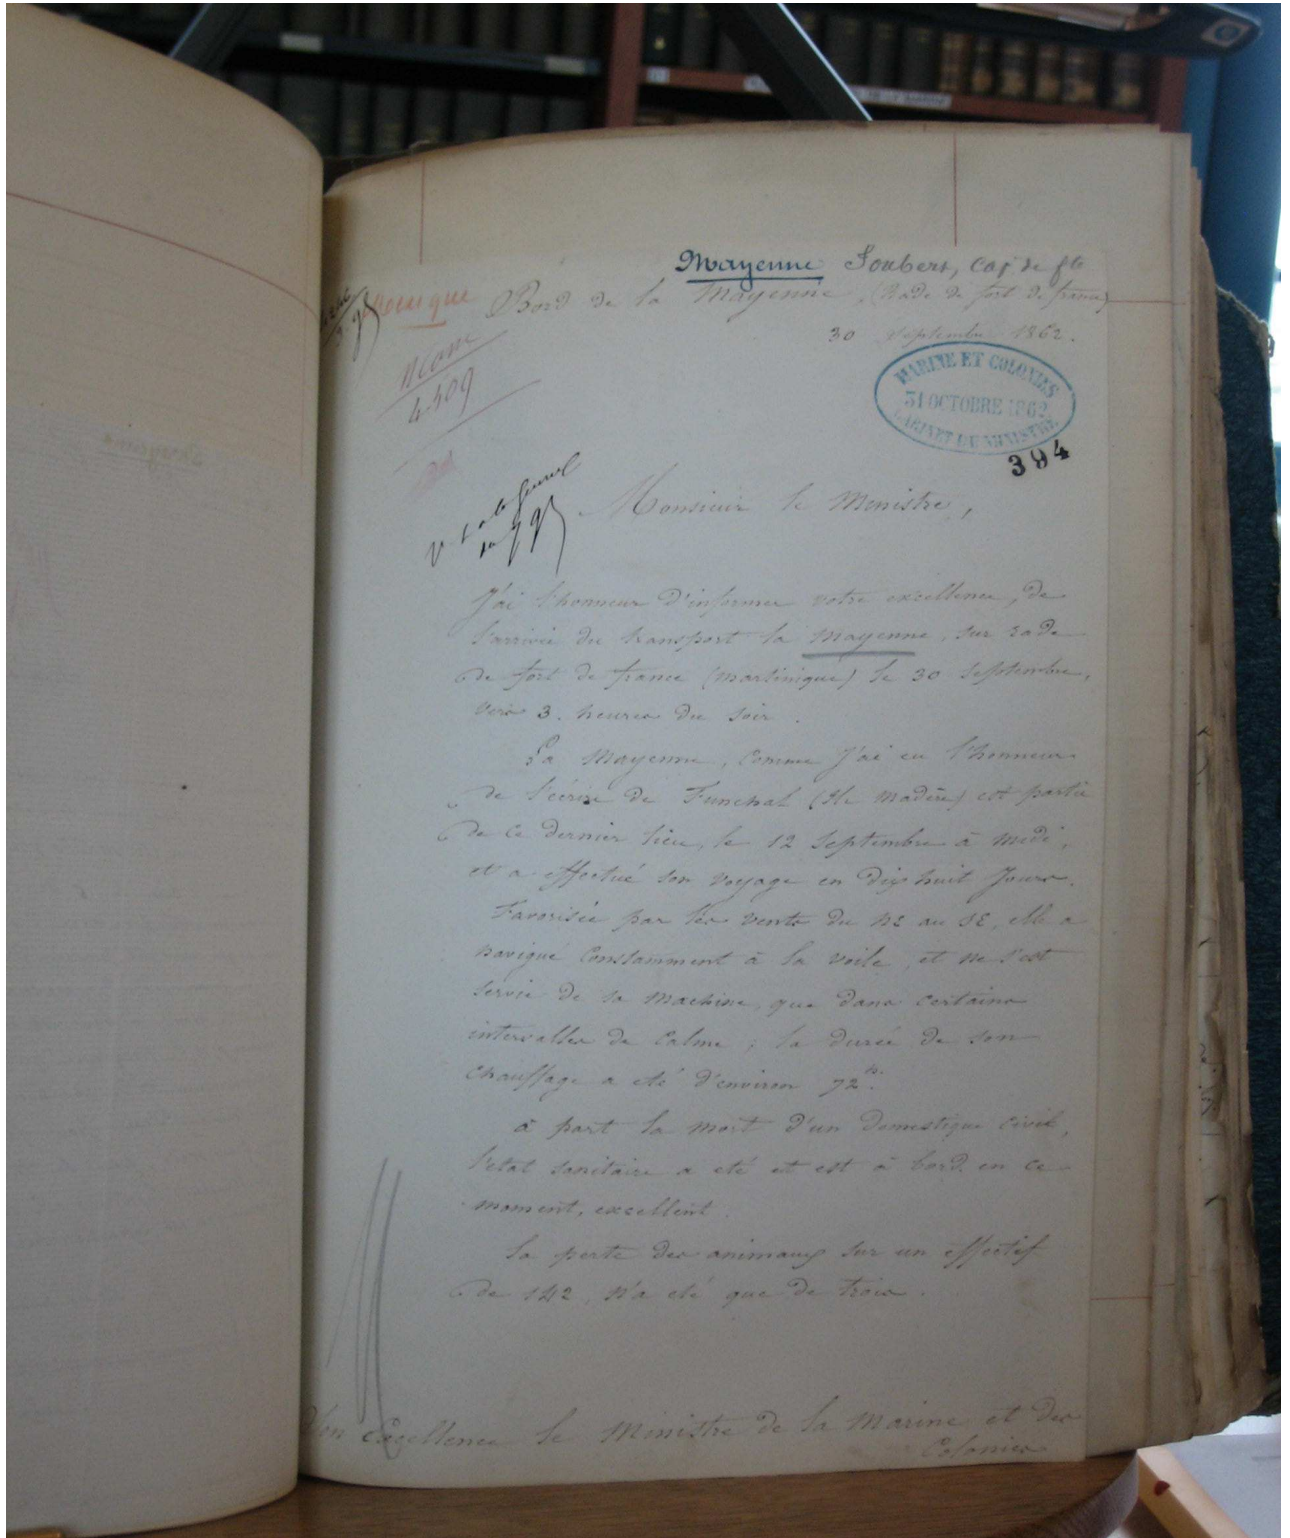 Mayenne Joubert, cap. de fte
Bord de la Mayenne, (Rade de fort de france)
30 Septembre 1862.
MARINE ET COLONIES
31 OCTOBRE 1862
CABINET DU MINISTRE
394
4309
Monsieur le Ministre,
J'ai l'honneur d'informer votre excellence, de
l'arrivée du transport la Mayenne, sur rade
de fort de france (martinique) le 30 Septembre,
vers 3. heures du soir.
La Mayenne, comme j'ai eu l'honneur
de l'écrire de Funchal (Ile madère) est partie
de ce dernier lieu, le 12 Septembre à midi,
et a effectué son voyage en dix huit jours.
Favorisée par les vents du NE au SE, elle a
navigué constamment à la voile, et ne s'est
servie de sa machine, que dans certains
intervalles de calme ; la durée de son
chauffage a été d'environ 72h.
à part la mort d'un domestique civil,
l'état sanitaire a été et est à bord en ce
moment, excellent.
la perte des animaux sur un effectif
de 142, n'a été que de trois.
Son Excellence le Ministre de la Marine et des
Colonies